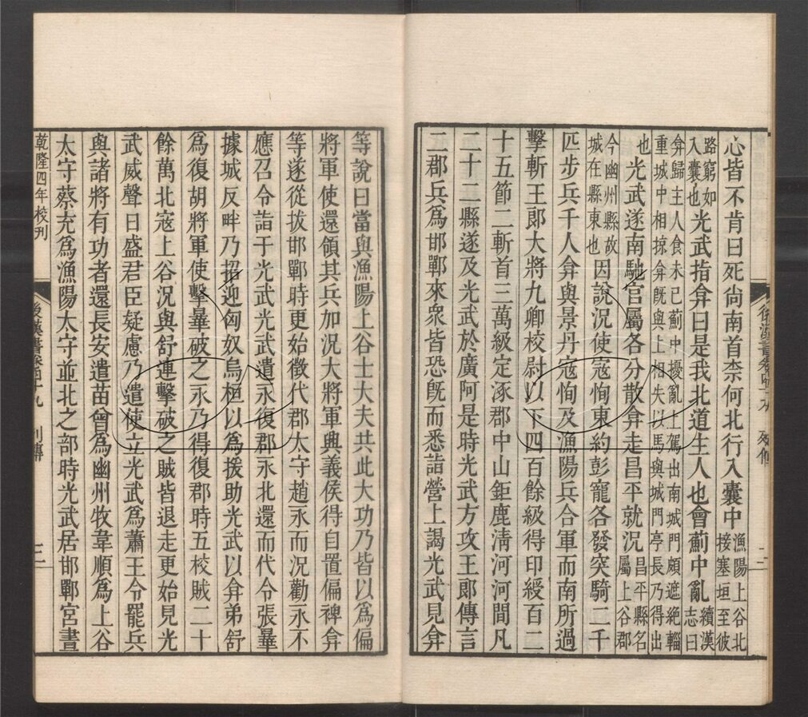 心皆不肯曰死尚南首柰何北行入囊中漁陽上谷北接塞垣至彼
路窮如入囊也光武指弇曰是我北道主人也會薊中亂續漢志曰
弇歸主人食未已薊中擾亂上駕出南城門顧遮絶輜重城中相掠弇旣與上相失以馬與城門亭長乃得出
也光武遂南馳官屬各分散弇走昌平就況昌平縣名屬上谷郡
今幽州縣故城在縣東也因說況使寇恂東約彭寵各發突騎二千
匹步兵千人弇與景丹寇恂及漁陽兵合軍而南所過
擊斬王郎大將九卿校尉以下四百餘級得印綬百二
十五節二斬首三萬級定涿郡中山鉅鹿清河河間凡
二十二縣遂及光武於廣阿是時光武方攻王郎傳言
二郡兵爲邯鄲來衆皆恐旣而悉詣營上謁光武見弇
等說曰當與漁陽上谷士大夫共此大功乃皆以爲偏
將軍使還領其兵加況大將軍興義侯得自置偏裨弇
等遂從拔邯鄲時更始徵代郡太守趙永而況勸永不
應召令詣于光武光武遣永復郡永北還而代令張曄
據城反畔乃招迎匈奴烏桓以爲援助光武以弇弟舒
爲復胡將軍使擊曄破之永乃得復郡時五校賊二十
餘萬北寇上谷況與舒連擊破之賊皆退走更始見光
武威聲日盛君臣疑慮乃遣使立光武爲蕭王令罷兵
與諸將有功者還長安遣苗曾爲幽州牧韋順爲上谷
太守蔡充爲漁陽太守並北之部時光武居邯鄲宮晝
乾隆四年校刊
後漢書卷四十九 列傳 三